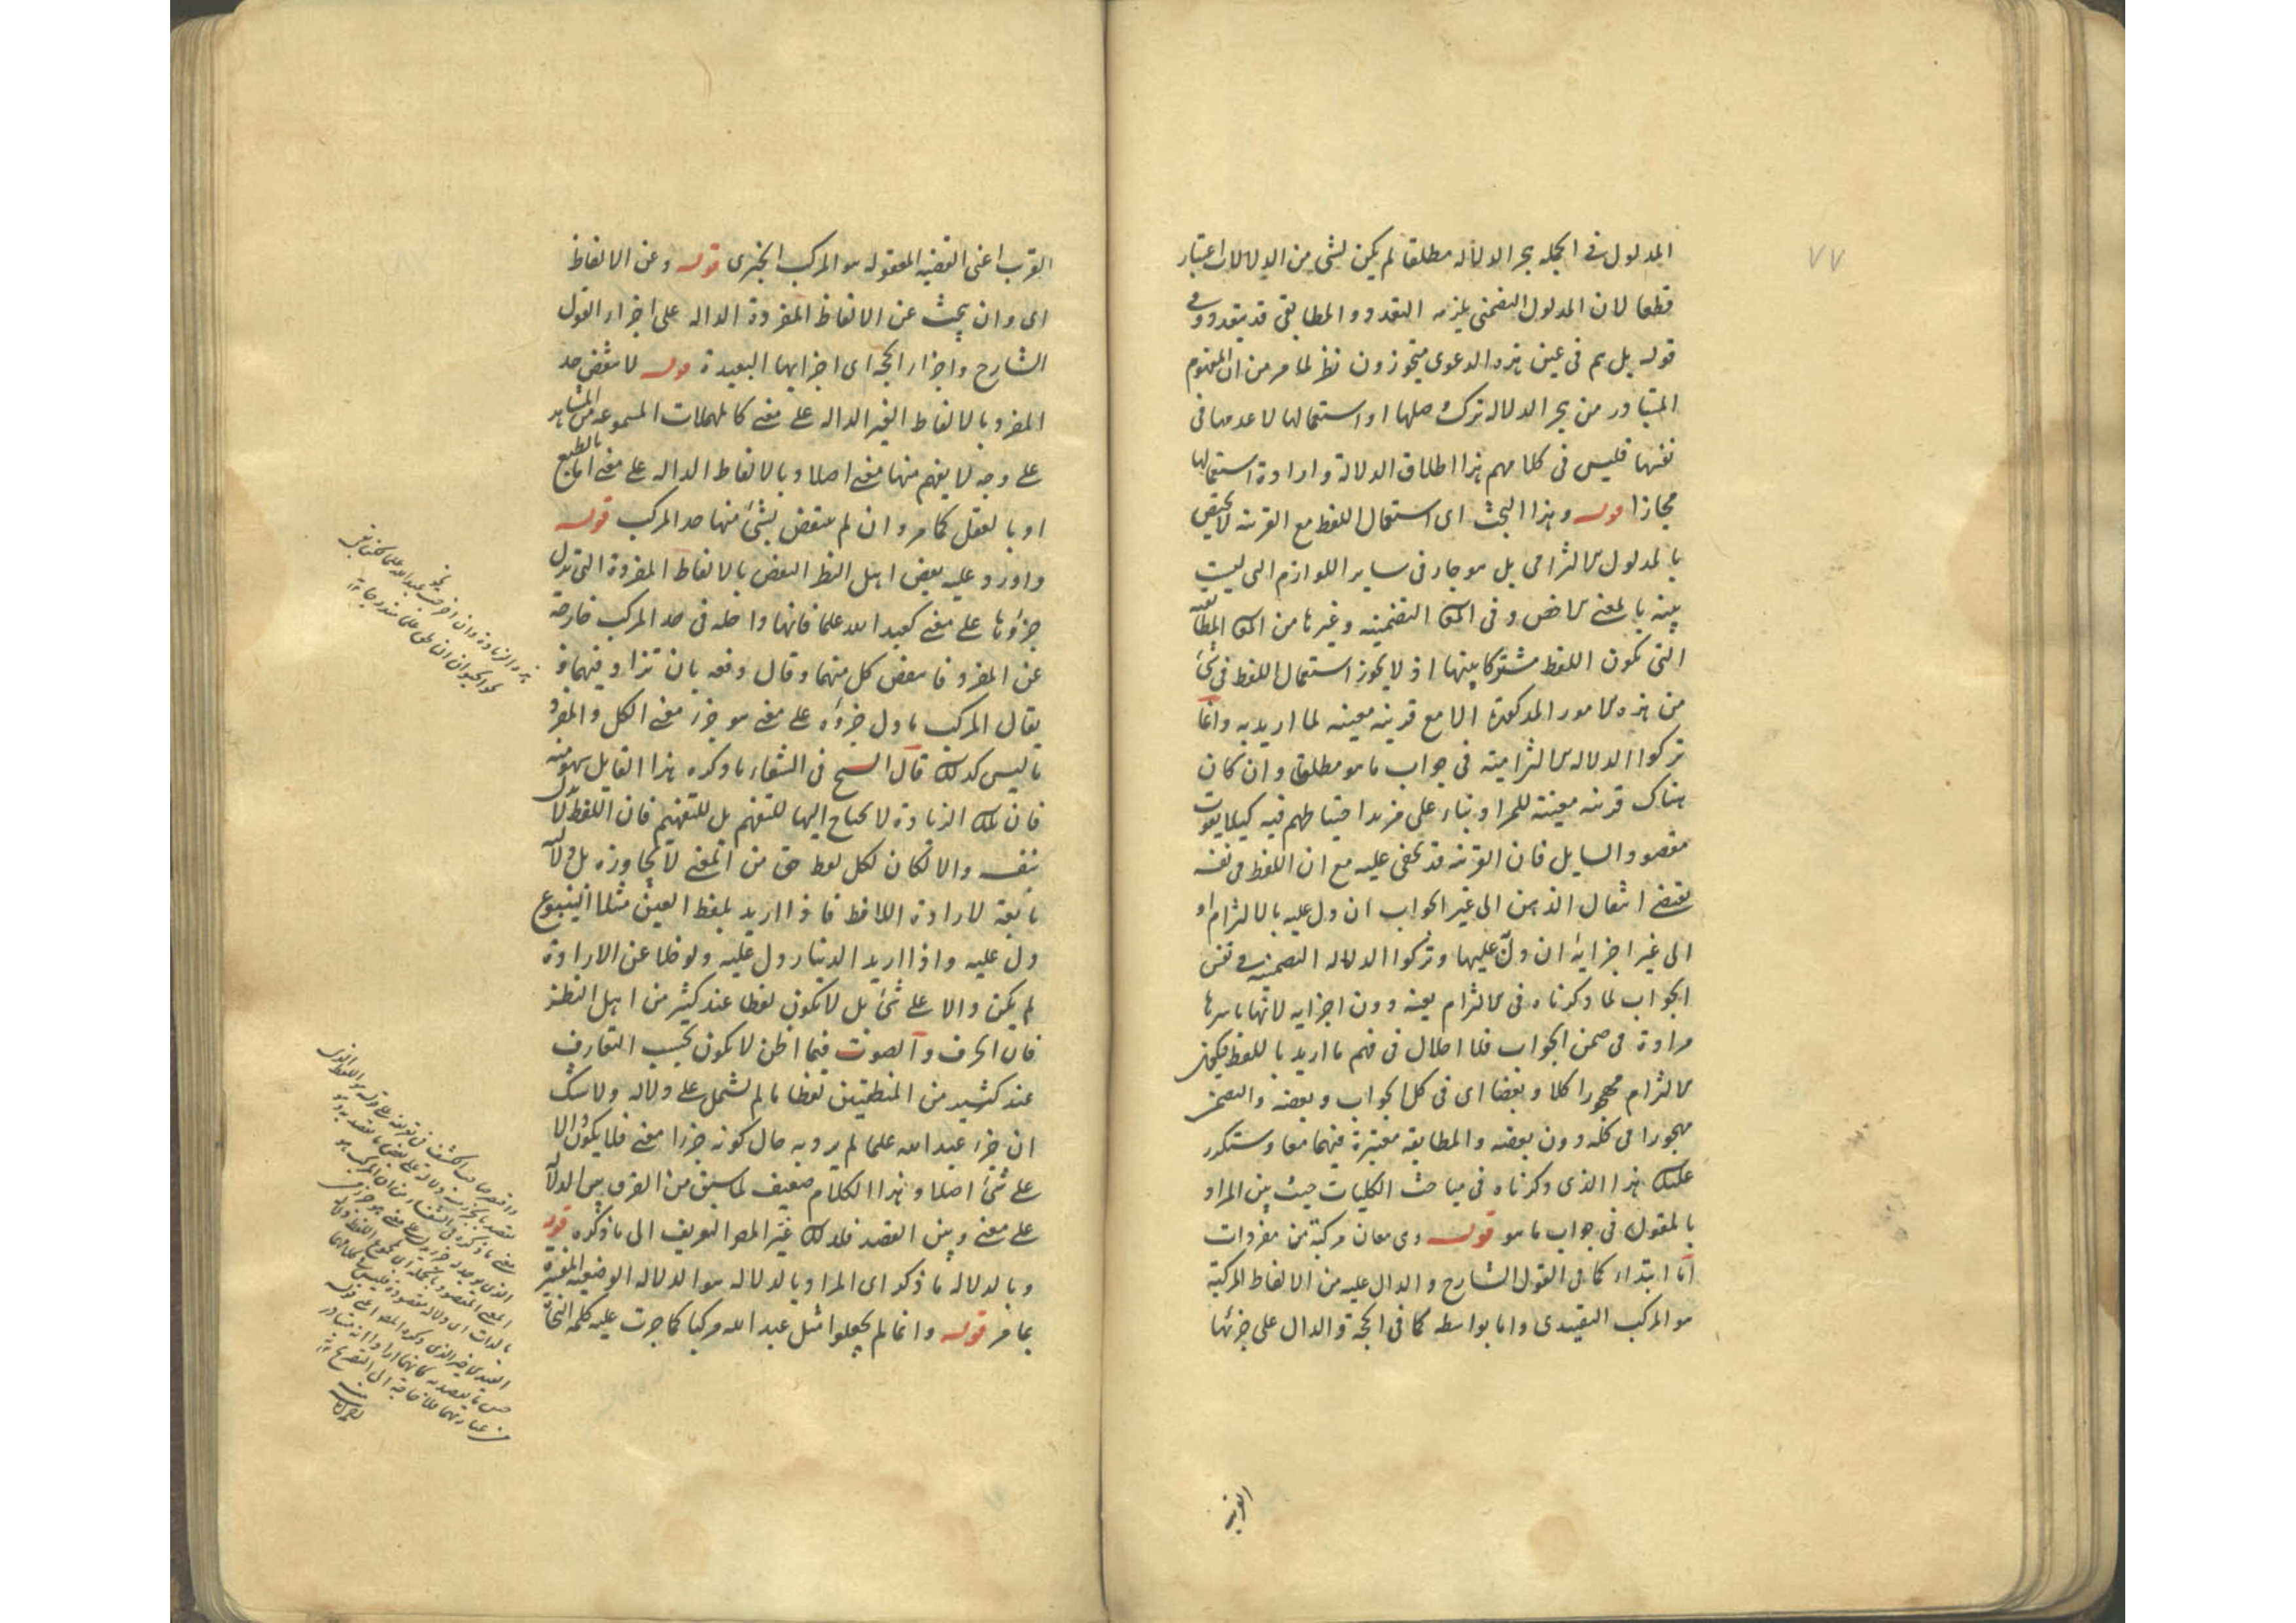 ٧٧
المدلول في الجمله بجر الدلاله مطلقا لم يكن لشي من الدلالات اعتبار
قطعا لان المدلول التضمنى يلزمه التعدد والمطابقى قد يتعدد وفى
قوله بل هم فى عين هذه الدعوى متجوزون نظر لما مر من ان المفهوم
المتبادر من بجر الدلاله ترك اصلها او استعمالها لا عدمها فى
نفسها فليس فى كلامهم هذا اطلاق الدلالة وارادة استعمالها
مجازا قوله وهذا البحث اى استعمال اللفظ مع القرينه لا يختص
بالمدلول الالتزامى بل هو جار فى ساير اللوازم التى ليست
بينه بالمعنى الاخص وفى المعانى التضمنيه وغيرها من المعانى المطابقيه
التى يكون اللفظ مشتركا بينها اذ لا يجوز استعمال اللفظ فى شئ
من هذه الامور المذكورة الا مع قرينه معينه لما اريد به وانما
تركوا الدلاله الالتزاميته فى جواب ما هو مطلقا وان كان
هناك قرينه معينة للمراد بناء على مزيد احتياطهم فيه كيلا يفوت
مقصود السايل فان القرينه قد تخفى عليه مع ان اللفظ فى نفسه
يقتضى انتقال الذهن الى غير الجواب ان دل عليه بالالتزام او
الى غير اجزايه ان دل عليها وتركوا الدلاله التضمنيه فى نفس
الجواب لما ذكرناه فى الالتزام بعينه دون اجزايه لانها باسرها
مرادة فى ضمن الجواب فلا اخلال فى فهم ما اريد باللفظ فيكون
الالتزام مهجورا كلا وبعضا اى فى كل الجواب وبعضه والتضمن
مهجورا فى كله دون بعضه والمطابقه معتبرة فيهما معا وستكرر
عليك هذا الذى ذكرناه فى مباحث الكليات حيث بين المراد
بالمقول فى جواب ما هو قوله وهى معان مركبة من مفردات
اما ابتداء كما فى القول الشارح والدال عليه من الالفاظ المركبة
هو المركب التقييدى واما بواسطه كما فى الحجة والدال على جزئها
القريب
القرب اعنى القضيه المعقوله هو المركب الخبرى قوله وعن الالفاظ
اى وان يبحث عن الالفاظ المفردة الداله على اجزاء القول
الشارح واجزاء الحجة اى اجزايها البعيدة قوله لا ينقض حد
المفرد بالالفاظ الغير الداله على معنى كالمهملات المسموعه من المشاهد
على وجه لا يفهم منها معنى اصلا وبالالفاظ الداله على معنى اما بالطبع
او بالعقل كما مر وان لم ينتقض بشئ منها حد المركب قوله
واورد عليه بعض اهل النظر النقض بالالفاظ المفردة التى تدل
جزؤها على معنى كعبد الله علما فانها داخله فى حد المركب خارجة
عن المفرد فانتقض كل منهما وقال دفعه بان تزاد فيهما و
يقال المركب ما دل جزؤه على معنى هو جزء معنى الكل والمفرد
ما ليس كذلك قال الشيخ فى الشفاء ما ذكره هذا القايل سهو منه
فان تلك الزيادة لا يحتاج اليها للتفهم بل للتفهيم فان اللفظ لا يدل
بنفسه والا لكان لكل لفظ حق من المعنى لا يجاوزه بل دلالته
تابعة لارادة اللافظ فاذا اريد بلفظ العين مثلا الينبوع
دل عليه واذا اريد الدينار دل عليه ولو خلا عن الارادة
لم يكن دالا على شئ بل لا يكون لفظا عند كثير من اهل النظر
فان الحرف والصوت فيما اظن لا يكون بحسب التعارف
عند كثير من المنطقيين لفظا ما لم يشتمل على دلاله ولا شك
ان جزء عبد الله علما لم يرد به حال كونه جزءا معنى فلا يكون دالا
على شئ اصلا وهذا الكلام ضعيف لما سبق من الفرق بين الدلالة
على معنى وبين القصد فلذلك غير المصنف التعريف الى ما ذكره قوله
وبالدلاله ما ذكر اى المراد بالدلاله هو الدلاله الوضعيه المفسرة
بما مر قوله وانما لم يجعلوا مثل عبد الله مركبا كما جرت عليه كلمة النحاة
هذه الزيادة وان اخرجت نحو عبد الله علما